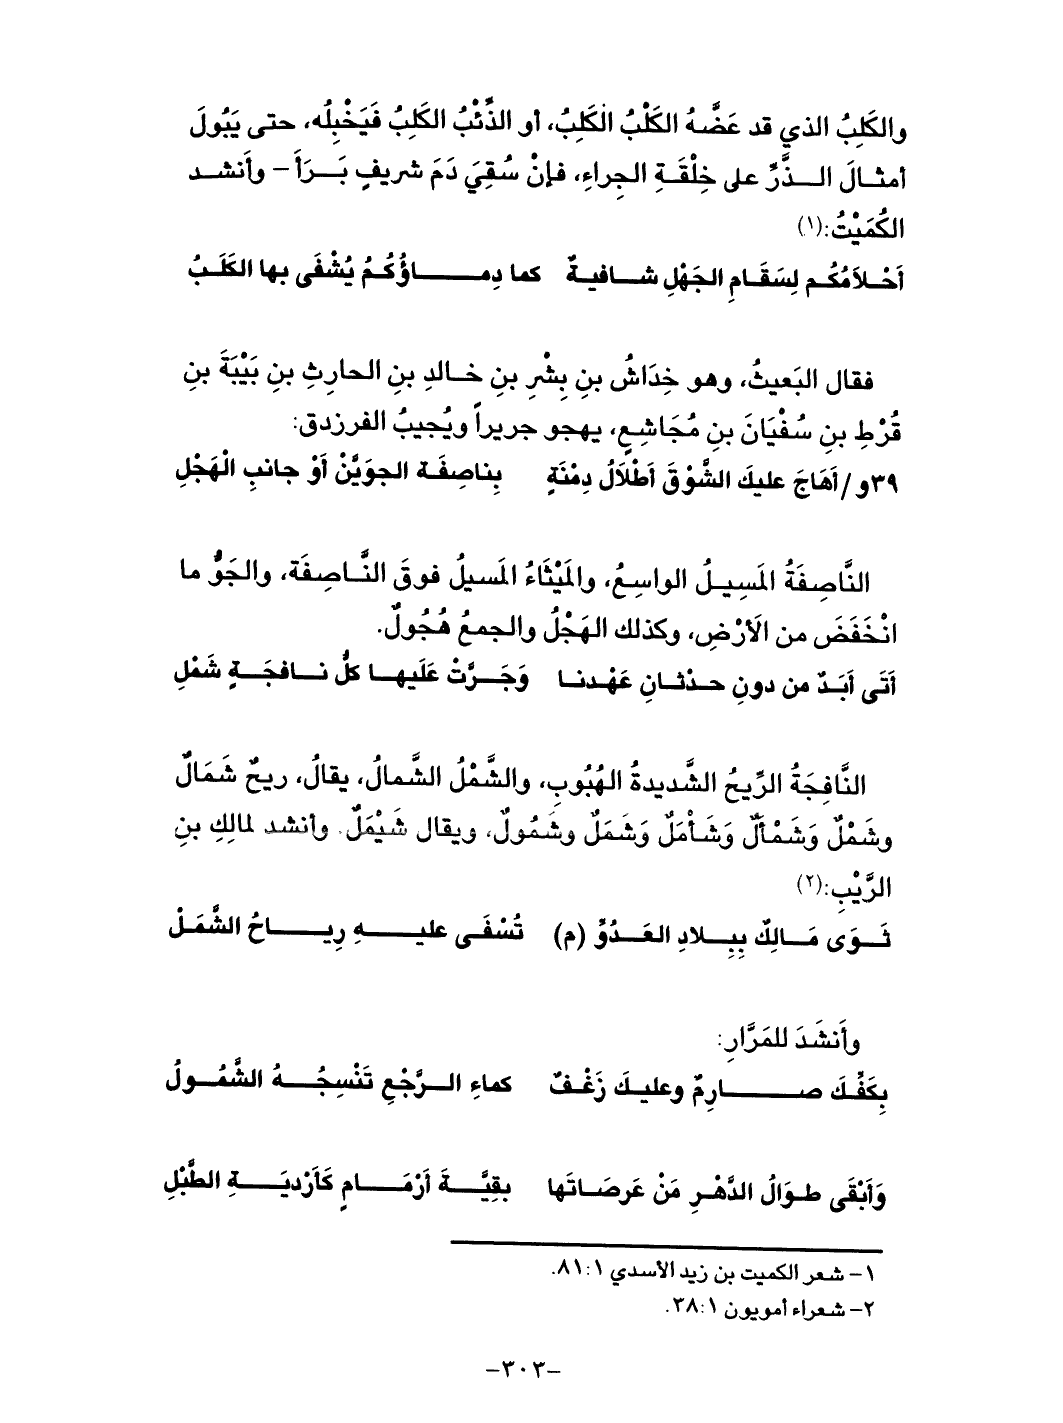 والكَلِبُ الذي قد عَضَّهُ الكَلْبُ الكَلِبُ، أو الذِّئْبُ الكَلِبُ فَيَخْبِلُه، حتى يَبُولَ
أمثالَ الذَّرِّ على خِلْقَةِ الجِراءِ، فإنْ سُقِيَ دَمَ شريفٍ بَرَأَ – وأَنشد
الكُمَيْتُ:(١)
أَحْلاَمُكُم لِسَقَامِ الجَهْلِ شافيةٌ كما دِماؤُكُمُ يُشْفَى بها الكَلَبُ
فقال البَعيثُ، وهو خِدَاشُ بنِ بِشْرِ بنِ خالدِ بنِ الحارثِ بنِ بَيْبَةَ بنِ
قُرْطِ بنِ سُفْيَانَ بنِ مُجَاشِعٍ، يهجو جريراً ويُجيبُ الفرزدق:
٣٩و/أَهَاجَ عليكَ الشَّوْقَ أَطْلَالُ دِمْنَةٍ بِناصِفَة الجوَيَّنْ أَوْ جانبِ الْهَجْلِ
النَّاصِفَةُ المَسِيلُ الواسِعُ، والمَيْثَاءُ المَسيلُ فوقَ النَّاصِفَة، والجَوُّ ما
انْخَفَضَ من الأَرْضِ، وكذلك الهَجْلُ والجمعُ هُجُولٌ.
أَتَى أَبَدٌ من دونِ حدْثانِ عَهْدنا وَجَرَّتْ عَلَيها كلُّ نافجَةٍ شَمْلِ
النَّافِجَةُ الرِّيحُ الشَّديدةُ الهُبُوبِ، والشَّمْلُ الشَّمالُ، يقالُ، ريحٌ شَمَالٌ
وشَمْلٌ وَشَمْأَلٌ وَشَأْمَلٌ وَشَمَلٌ وشَمُولٌ، ويقال شَيْمَلٌ. وأنشد لمالِكِ بنِ
الرَّيْبِ:(٢)
ثَوَى مَالِكٌ بِبِلادِ العَدُوِّ (م) تُسْفَى عليهِ رِياحُ الشَّمَلْ
وأَنشَدَ للمَرَّارِ:
بِكَفِّكَ صارِمٌ وعليكَ زَغْفٌ كماءِ الرَّجْعِ تَنْسِجُهُ الشَّمُولُ
وَأَبْقَى طوَالُ الدَّهْرِ مَنْ عَرصَاتَها بقِيَّةَ أَرْمَامٍ كَأَرْديَةِ الطَّبْلِ
١– شعر الكميت بن زيد الأسدي ٨١:١.
٢– شعراء أمويون ٣٨:١.
–٣٠٣–